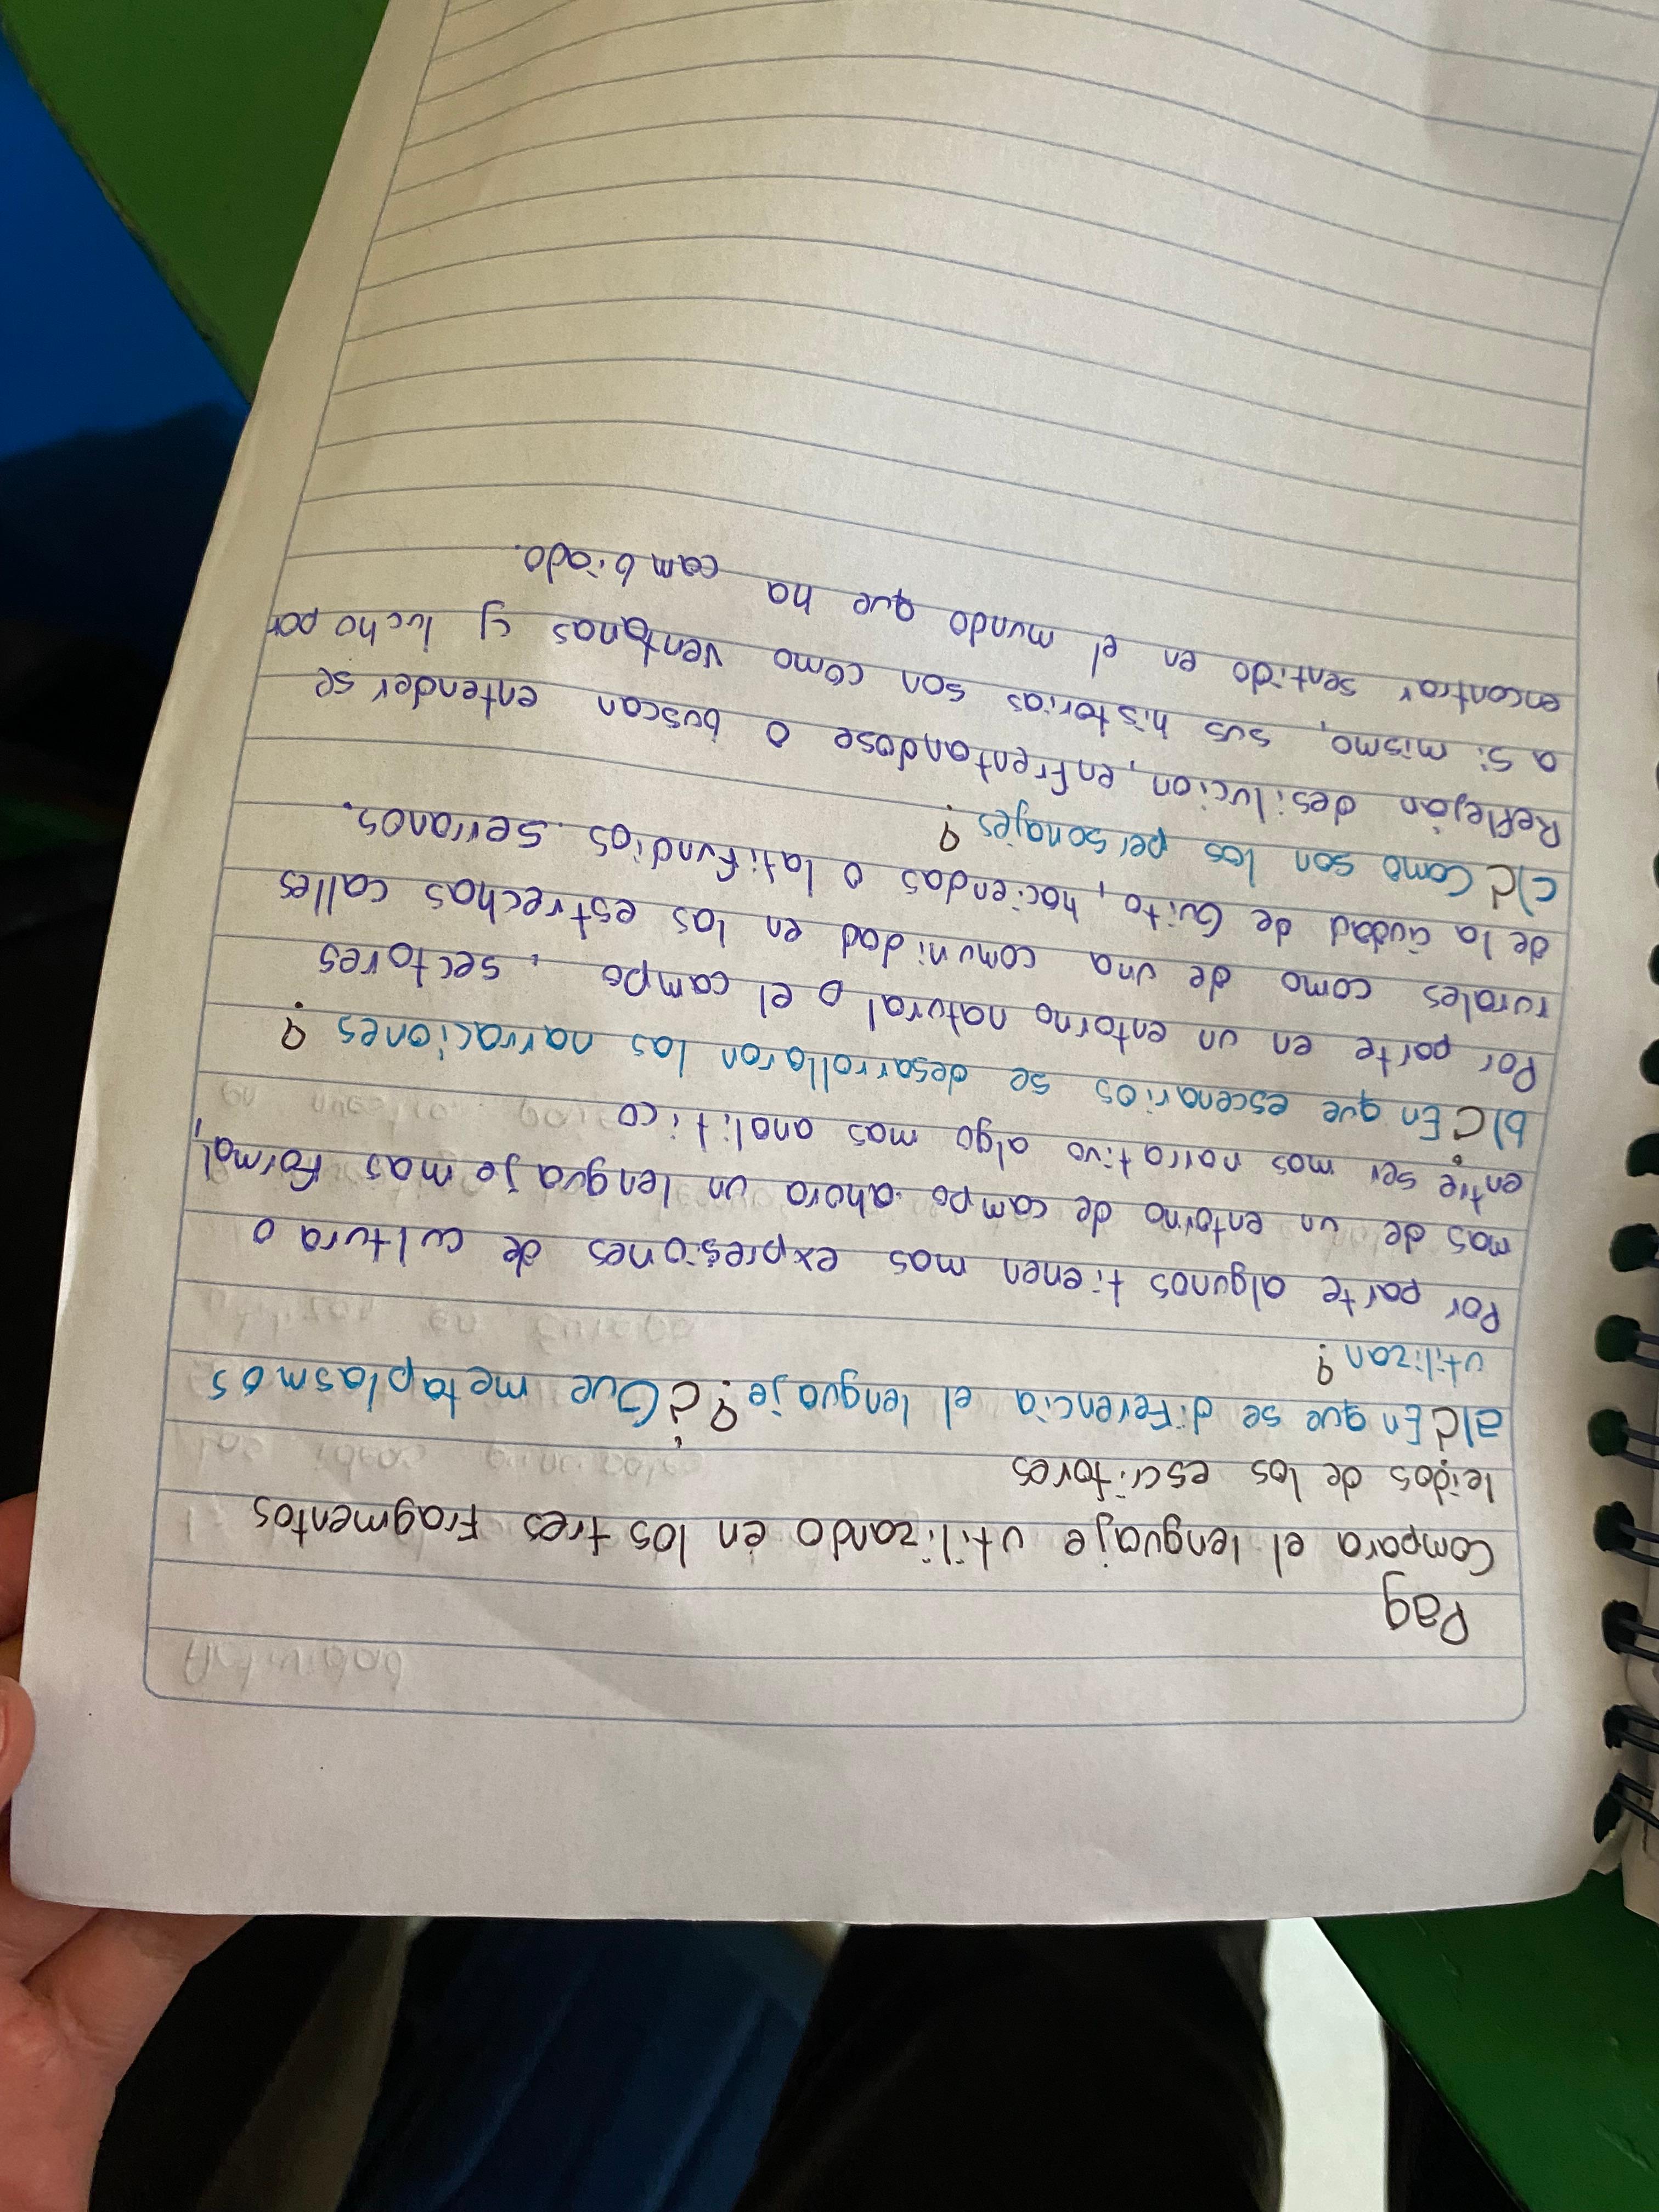 Pag
Compara el lenguaje utilizando en los tres fragmentos
leidos de los escritores
a)¿En que se diferencia el lenguaje? ¿Que metaplasmos
utilizan?
Por parte algunos tienen mas expresiones de cultura o
mas de un entorno de campo ahora un lenguaje mas formal,
entre ser mas narrativo algo mas analitico
b)¿En que escenarios se desarrollaron las narraciones?
Por parte en un entorno natural o el campo, sectores
rurales como de una comunidad en las estrechas calles
de la ciudad de Quito, haciendas o latifundios serranos.
c)¿Como son los personajes?
Reflejan desilucion, enfrentandose o buscan entender se
a si mismo, sus historias son como ventanas y lucho por
encontrar sentido en el mundo que ha cambiado.